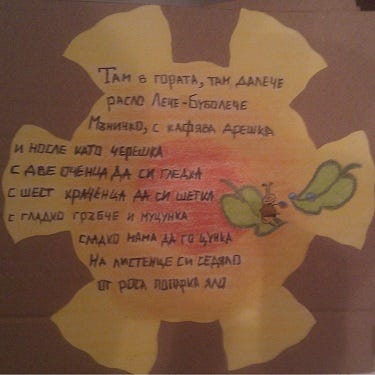 Там в гората, там далече
расло Лече-Буболече
Мъничко, с кафява дрешка
и носле като черешка
с две оченца да си гледка
с шест краченца да си шетка
с гладко гръбче и муцунка
сладко мама да го цунка
На листенце си седяло
от роса попарка яло